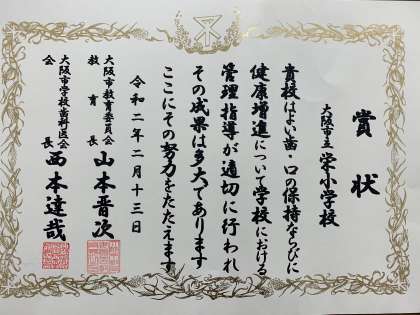 賞状
大阪市立 栄小学校
貴校はよい歯・口の保持ならびに
健康増進について学校における
管理指導が適切に行われ
その成果は多大であります
ここにその努力をたたえます
令和二年二月十三日
大阪市教育委員会
教育長 山本晋次
大阪市学校歯科医会
会長 西本達哉